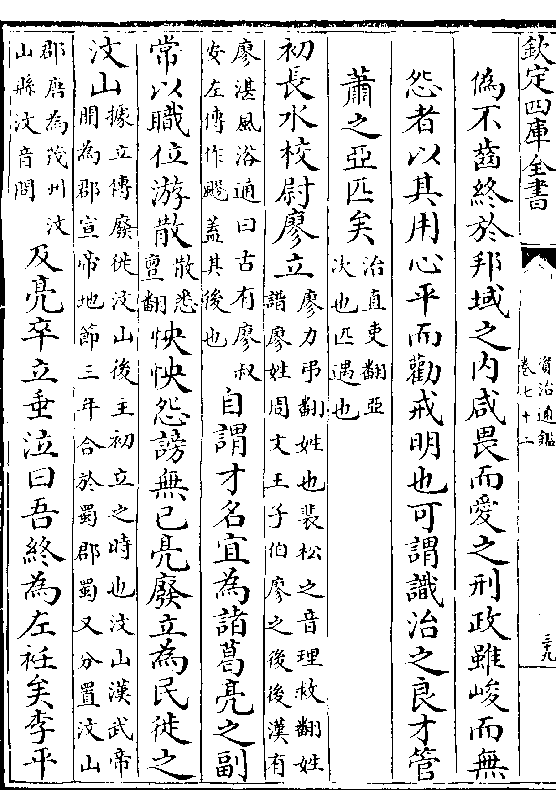 欽定四庫全書
資治通鑑
卷七十二
三九
偽不齒終於邦域之内咸畏而愛之刑政雖峻而無
怨者以其用心平而勸戒明也可謂識治之良才管
蕭之亞匹矣
治直吏翻亞
次也匹遇也
初長水校尉廖立
廖力弔翻姓也裴松之音理救翻姓
譜廖姓周文王子伯廖之後後漢有
廖湛風俗通曰古有廖叔
安左傳作飂蓋其後也
自謂才名宜為諸葛亮之副
常以職位游散
散悉
亶翻
怏怏怨謗無已亮廢立為民徙之
汶山
據立傳廢徙汶山後主初立之時也汶山漢武帝
開為郡宣帝地節三年合於蜀郡蜀又分置汶山
郡唐為茂州汶
山縣汶音問
及亮卒立垂泣曰吾終為左衽矣李平